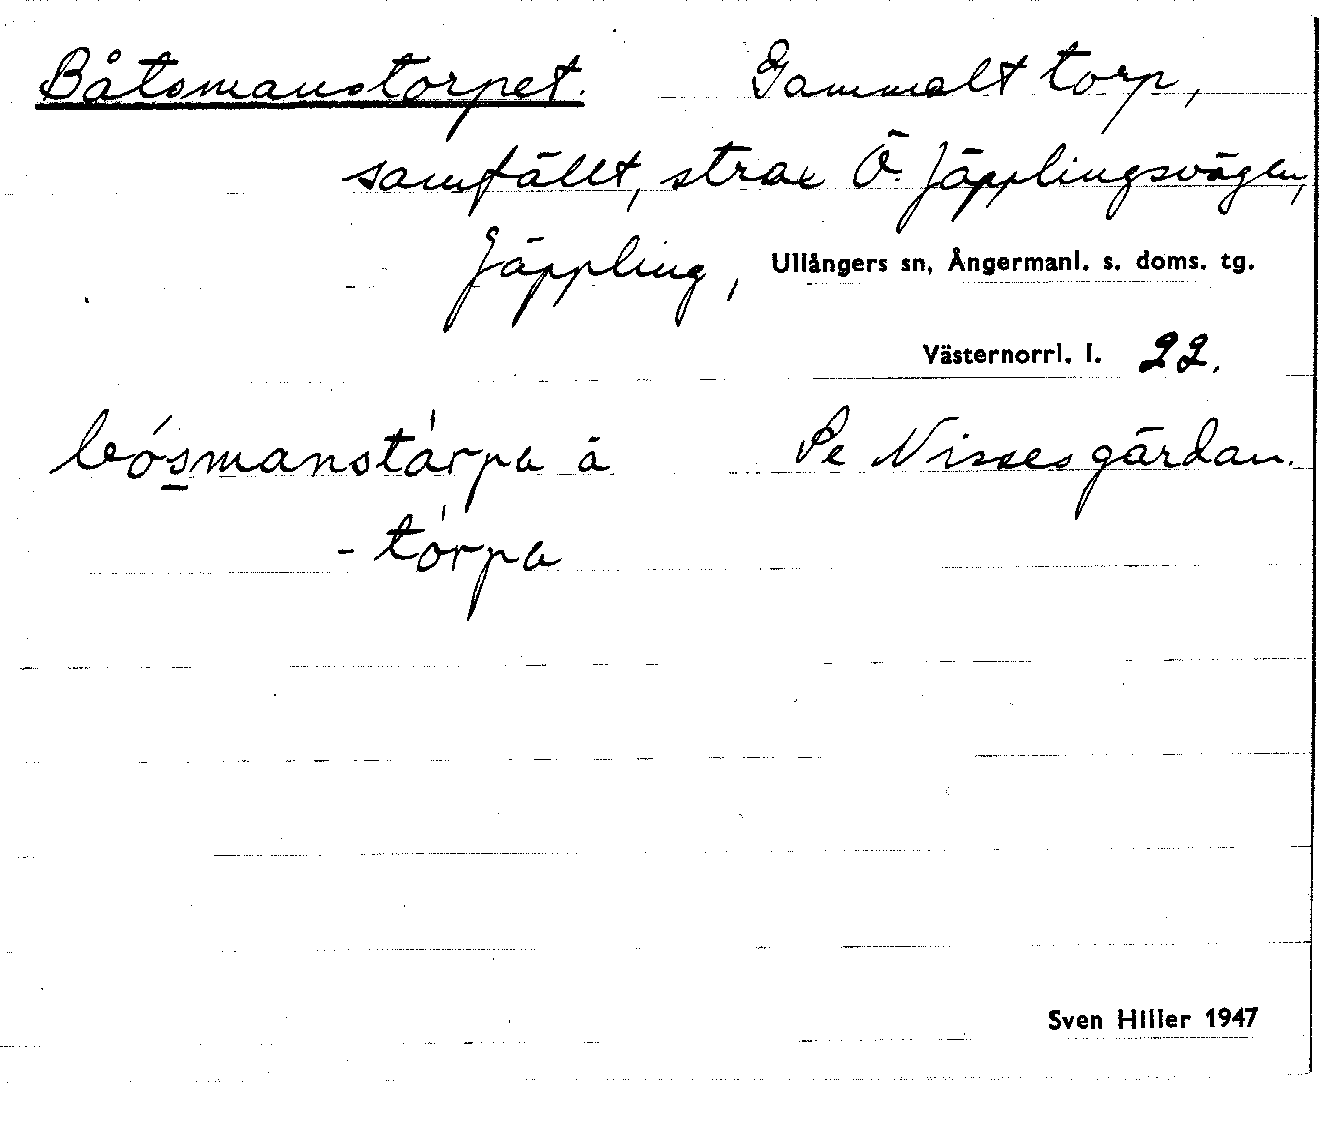 Båtsmanstorpet. Gammalt torp,
samfällt, strax Ö. Jäpplingsvägen,
Jäppling, Ullångers sn, Ångermanl. s. doms. tg.
Västernorrl. l. 22.
bósmanstàrpa å Pe Nissesgårdan.
-tòrpa
Sven Hiller 1947